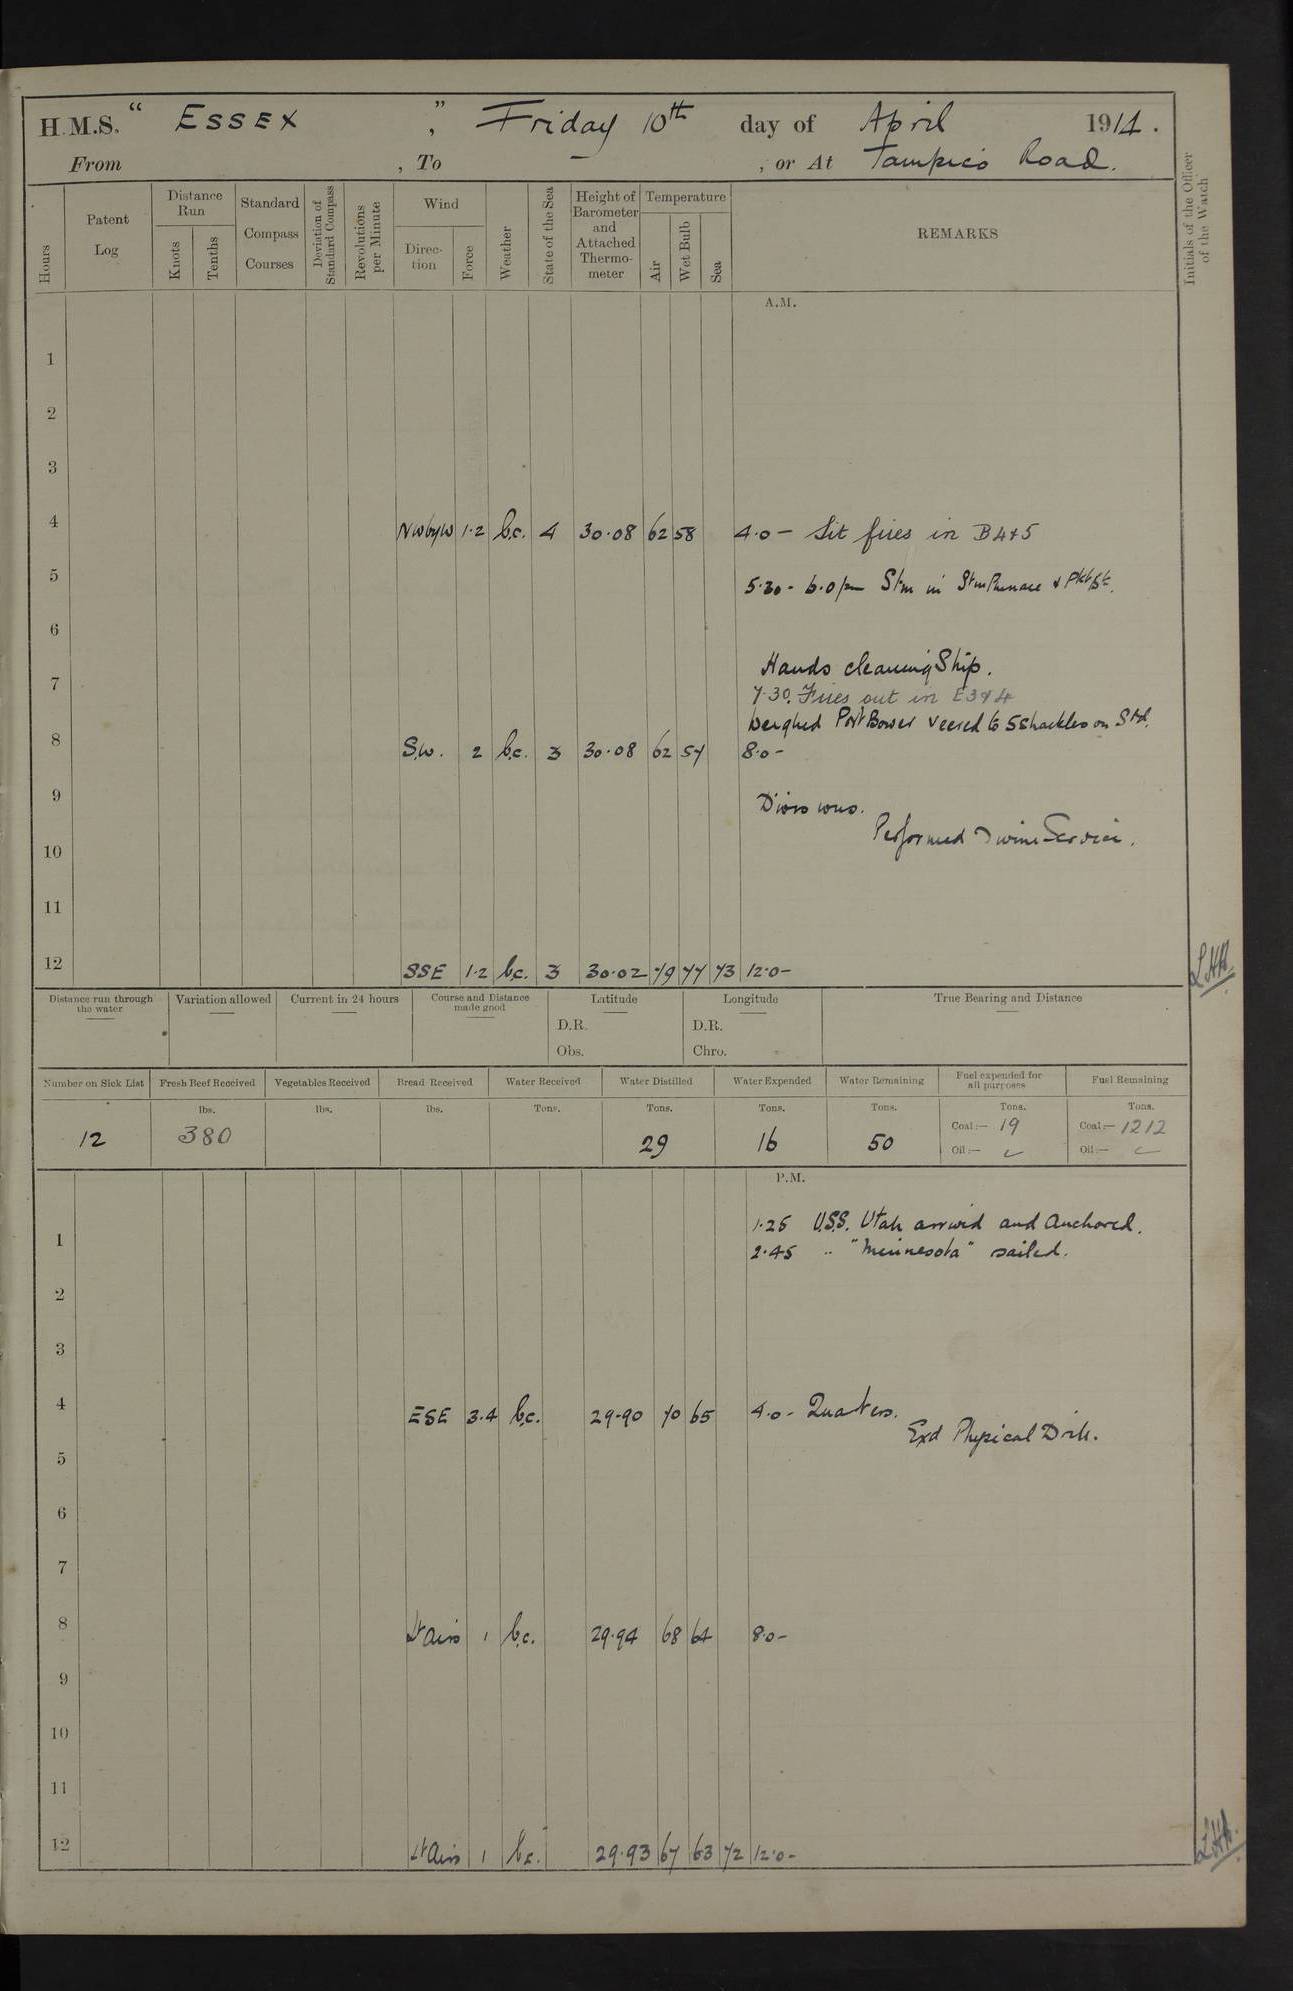 H.M.S. " ESSEX ", Friday 10th day of April 1914.
From , To — , or At Tampico Road.
Hours
Patent Log
Distance Run
Knots
Tenths
Standard Compass Courses
Deviation of Standard Compass
Revolutions per Minute
Wind
Direction
Force
Weather
State of the Sea
Height of Barometer and Attached Thermometer
Temperature
Air
Wet Bulb
Sea
REMARKS
Initials of the Officer of the Watch
A.M.
1
2
3
4 NWbyW 1·2 b.c. 4 30·08 62 58 4·0 — Lit fires in B4+5
5 5·30 - 6·0 Stm in Stm Pinnace & Pkt Bt.
6
Hands cleaning Ship.
7 7·30. Fires out in E3&4
Weighed Port Bower Veered to 5 Shackles on Stbd.
8 S.W. 2 b.c. 3 30·08 62 57 8·0 -
9 Divisions.
Performed Divine Service.
10
11
12 SSE 1·2 b.c. 3 30·02 79 77 73 12·0 - LHH.
Distance run through the water
Variation allowed
Current in 24 hours
Course and Distance made good
Latitude
D.R.
Obs.
Longitude
D.R.
Chro.
True Bearing and Distance
Number on Sick List Fresh Beef Received Vegetables Received Bread Received Water Received Water Distilled Water Expended Water Remaining Fuel expended for all purposes Fuel Remaining
lbs. lbs. lbs. Tons. Tons. Tons. Tons. Tons. Tons.
12 380 29 16 50 Coal:— 19 Coal:— 1212
Oil:— Oil:—
P.M.
1·25 U.S.S. Utah arrived and Anchored.
1 2·45 " "Minnesota" sailed.
2
3
4 ESE 3·4 b.c. 29·90 70 65 4·0 - Quarters.
Exd Physical Drill.
5
6
7
8 Lt Airs 1 b.c. 29·94 68 64 8·0 -
9
10
11
12 Lt Airs 1 b.c. 29·93 67 63 72 12·0 - LHH.